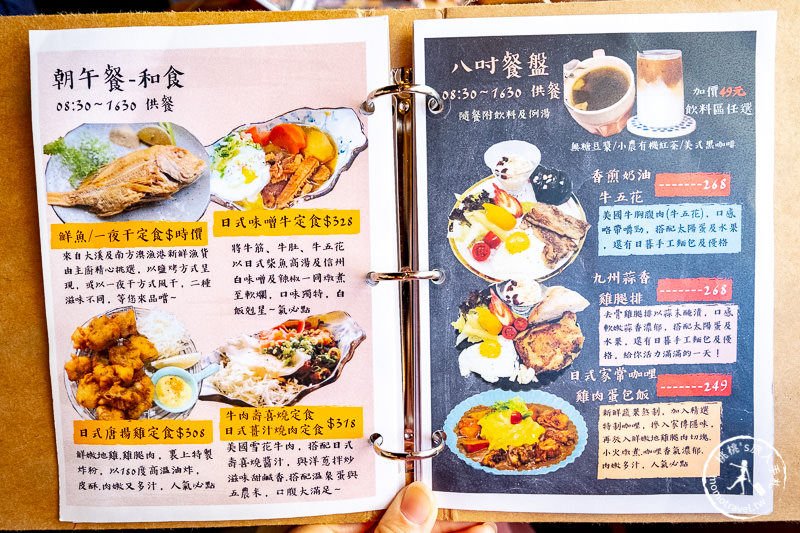 朝午餐-和食
08:30~1630 供餐
鮮魚/一夜干定食$時價
來自大溪及南方澳漁港新鮮漁貨
由主廚精心挑選，以鹽烤方式呈
現，或以一夜干方式風干，二種
滋味不同，等您來品嚐~
日式味噌牛定食$328
將牛筋、牛肚、牛五花
以日式柴魚高湯及信州
白味噌及辣椒一同燉煮
至軟爛，口味獨特，白
飯剋星~氣必點
日式唐揚雞定食$308
鮮嫩地雞,雞腿肉，裹上特製
炸粉，以180度高溫油炸，
皮酥,肉嫩又多汁，人氣必點
牛肉壽喜燒定食
日式薑汁燒肉定食$318
美國雪花牛肉，搭配日式
壽喜燒醬汁，與洋蔥拌炒
滋味甜鹹香.搭配溫泉蛋與
五農米，口腹大滿足~
八吋餐盤
08:30~1630 供餐
隨餐附飲料及例湯
加價49元
飲料區任選
無糖豆漿/小農有機紅茶/美式黑咖啡
香煎奶油
牛五花
-------268
美國牛胸腹肉(牛五花)，口感
略帶嚼勁，搭配太陽蛋及水果
，還有日暮手工麵包及優格
九州蒜香
雞腿排
-------268
去骨雞腿排以蒜末醃漬，口感
軟嫩蒜香濃郁，搭配太陽蛋及
水果，還有日暮手工麵包及優
格，給你活力滿滿的一天！
日式家常咖哩
雞肉蛋包飯
-------249
新鮮蔬菓熬制，加入精選
特制咖哩，摻入家傳隱味，
再放入鮮嫩地雞雞肉切塊，
小火燉煮.咖哩香氣濃郁.
肉嫩多汁，人氣必點
桃桃's旅人手札
momotravel.tw